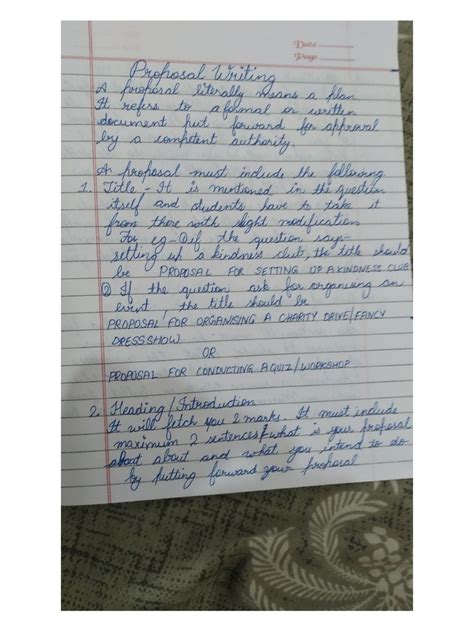 Date
Page
Proposal Writing
A proposal literally means a plan.
It refers to a formal or written
document put forward for approval
by a competent authority.
A proposal must include the following
1. Title - It is mentioned in the question
itself and students have to take it
from there with slight modification
For eg - ① if the question says-
setting up a kindness club, the title should
be PROPOSAL FOR SETTING UP A KINDNESS CLUB
② If the question ask for organising an
event, the title should be
PROPOSAL FOR ORGANISING A CHARITY DRIVE/FANCY
DRESS SHOW
OR
PROPOSAL FOR CONDUCTING A QUIZ/WORKSHOP
2. Heading/Introduction
It will fetch you 2 marks. It must include
maximum 2 sentences what is your proposal
about about and what you intend to do
by putting forward your proposal